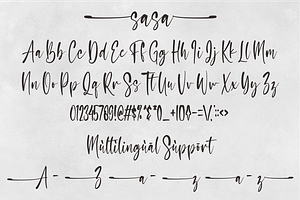 sasa
Aa Bb Cc Dd Ee Ff Gg Hh Ii Jj Kk Ll Mm
Nn Oo Pp Qq Rr Ss Tt Uu Vv Ww Xx Yy Zz
0123456789!@#$%^&*()_+{}-=\/,:;<>
Mùltilingùàl Sùppört
A - Z a - z a - z